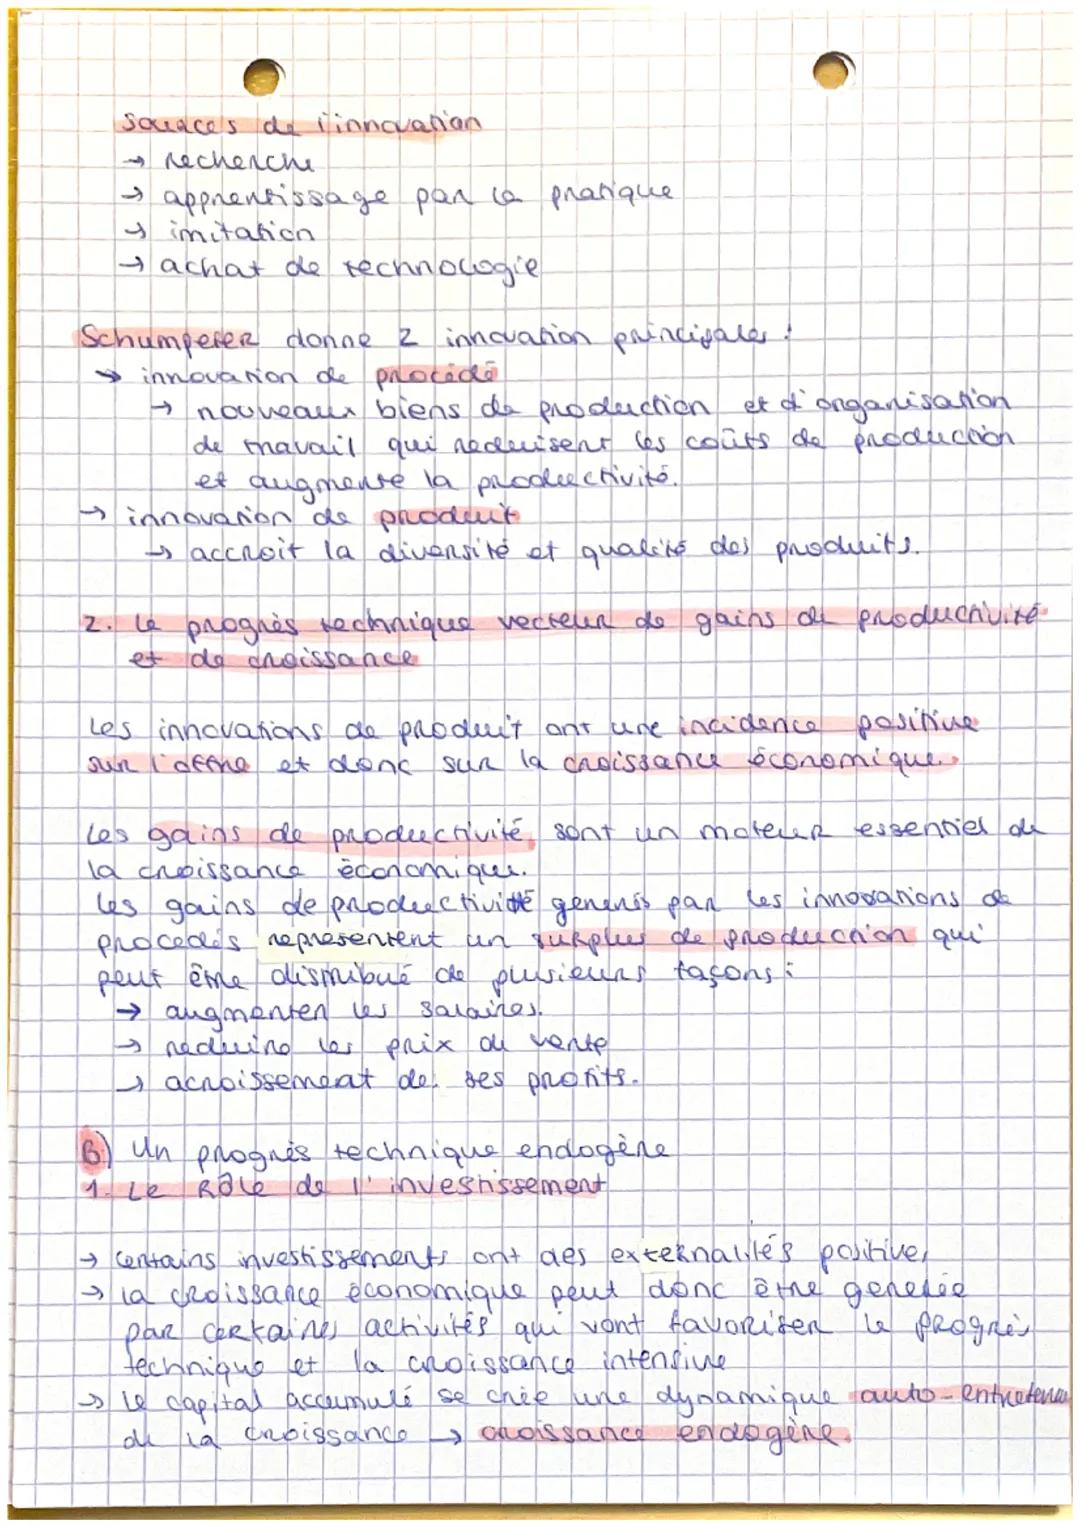 sources de l'innovation
→ recherche
→ apprentissage par la pratique
→ imitation
→ achat de technologie
Schumpeter donne 2 innovation principales :
→ innovation de procédé
→ nouveaux biens de production et d'organisation
de travail qui reduisent les coûts de production
et augmente la productivité.
→ innovation de produit
→ accroit la diversité et qualité des produits.
2. Le progrès technique vecteur de gains de productivité
et de croissance
Les innovations de produit ont une incidence positive
sur l'offre et donc sur la croissance économique.
Les gains de productivité sont un moteur essentiel de
la croissance économique.
Les gains de productivité generés par les innovations de
procedés representent un surplus de production qui
peut être distribué de plusieurs façons :
→ augmenter les salaires.
→ reduire les prix de vente
→ acroissement de ses profits.
B) Un progrès technique endogène
1. Le Rôle de l'investissement
→ Certains investissements ont des externalités positive,
→ la croissance économique peut donc être generée
par certaines activités qui vont favoriser le progrès
technique et la croissance intensive
→ le capital accumulé se crée une dynamique auto-entretenu
de la croissance → croissance endogène.